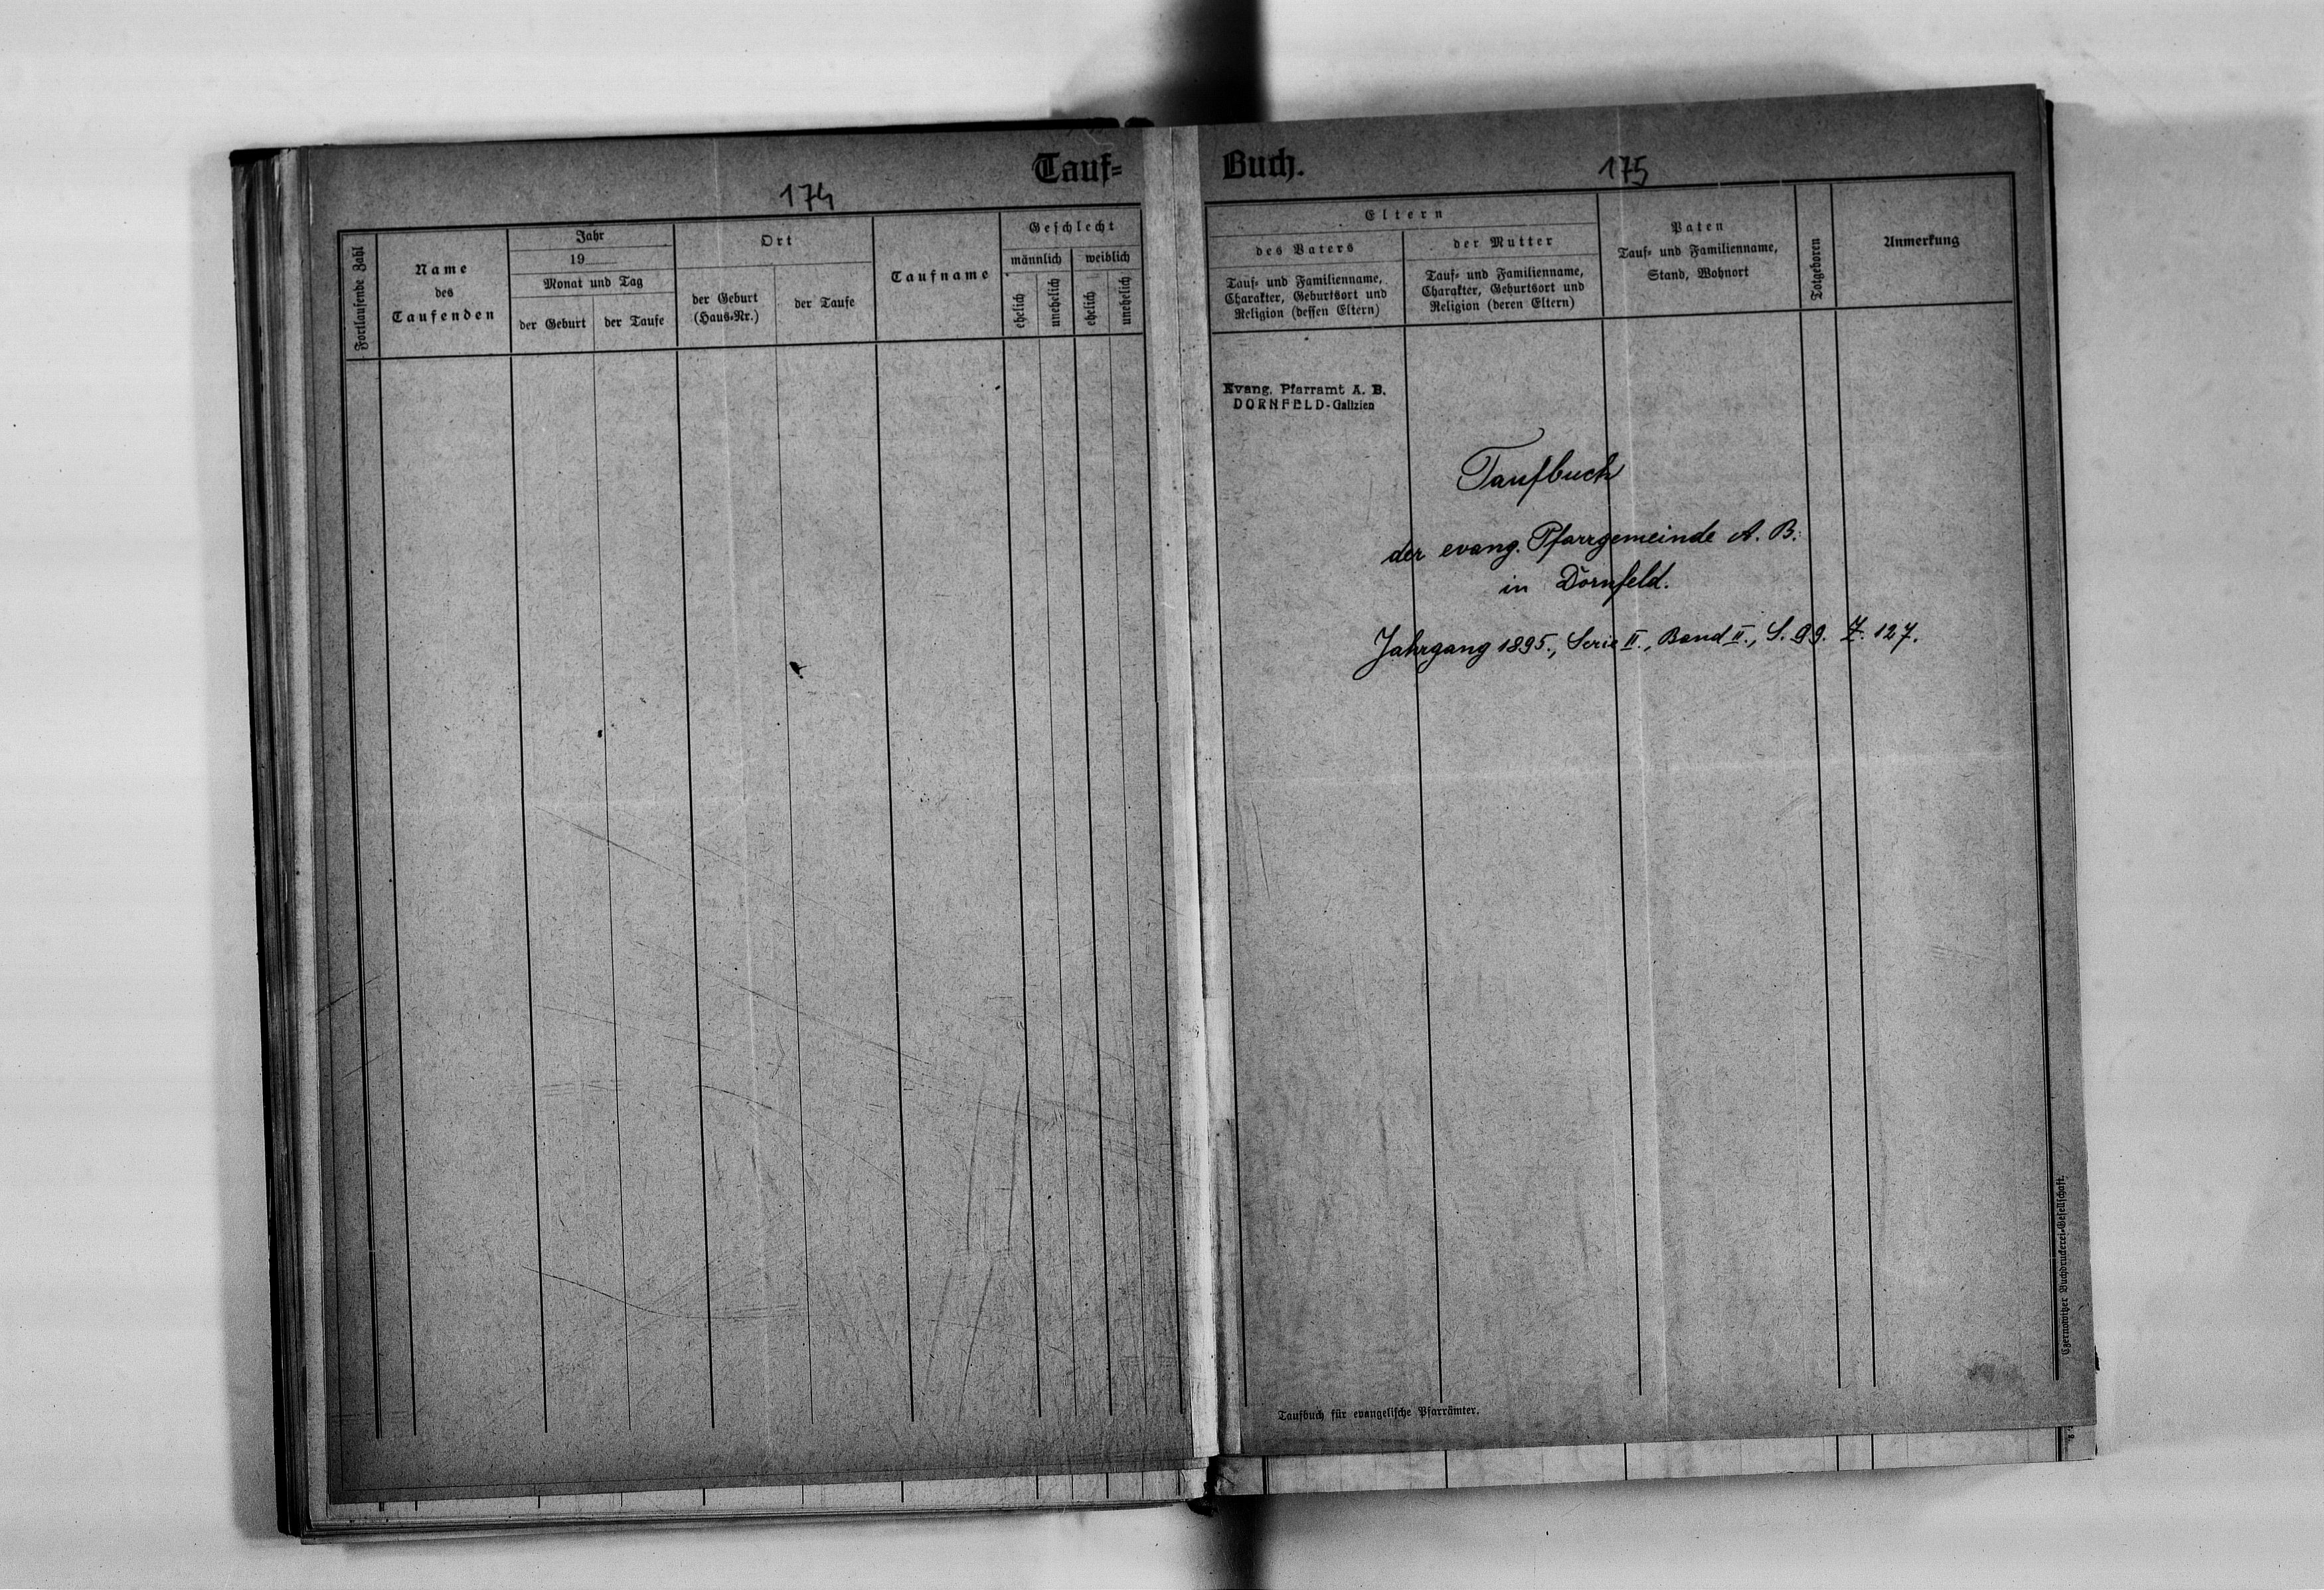 Tauf=
174
Fortlaufende Zahl
Name
des
Taufenden
Jahr
19
Monat und Tag
der Geburt
der Taufe
Ort
der Geburt
(Haus=Nr.)
der Taufe
Taufname
Geschlecht
männlich
weiblich
ehelich
unehelich
ehelich
unehelich
Buch.
175
Eltern
des Vaters
Tauf= und Familienname,
Charakter, Geburtsort und
Religion (dessen Eltern)
der Mutter
Tauf= und Familienname,
Charakter, Geburtsort und
Religion (deren Eltern)
Paten
Tauf= und Familienname,
Stand, Wohnort
Totgeboren
Anmerkung
Evang. Pfarramt A. B.
DORNFELD-Galizien
Taufbuch
der evang. Pfarrgemeinde A. B.
in Dornfeld.
Jahrgang 1895., Serie II., Band II., S. 99. Z. 127.
Czernowitzer Buchdruckerei=Gesellschaft.
Taufbuch für evangelische Pfarrämter.